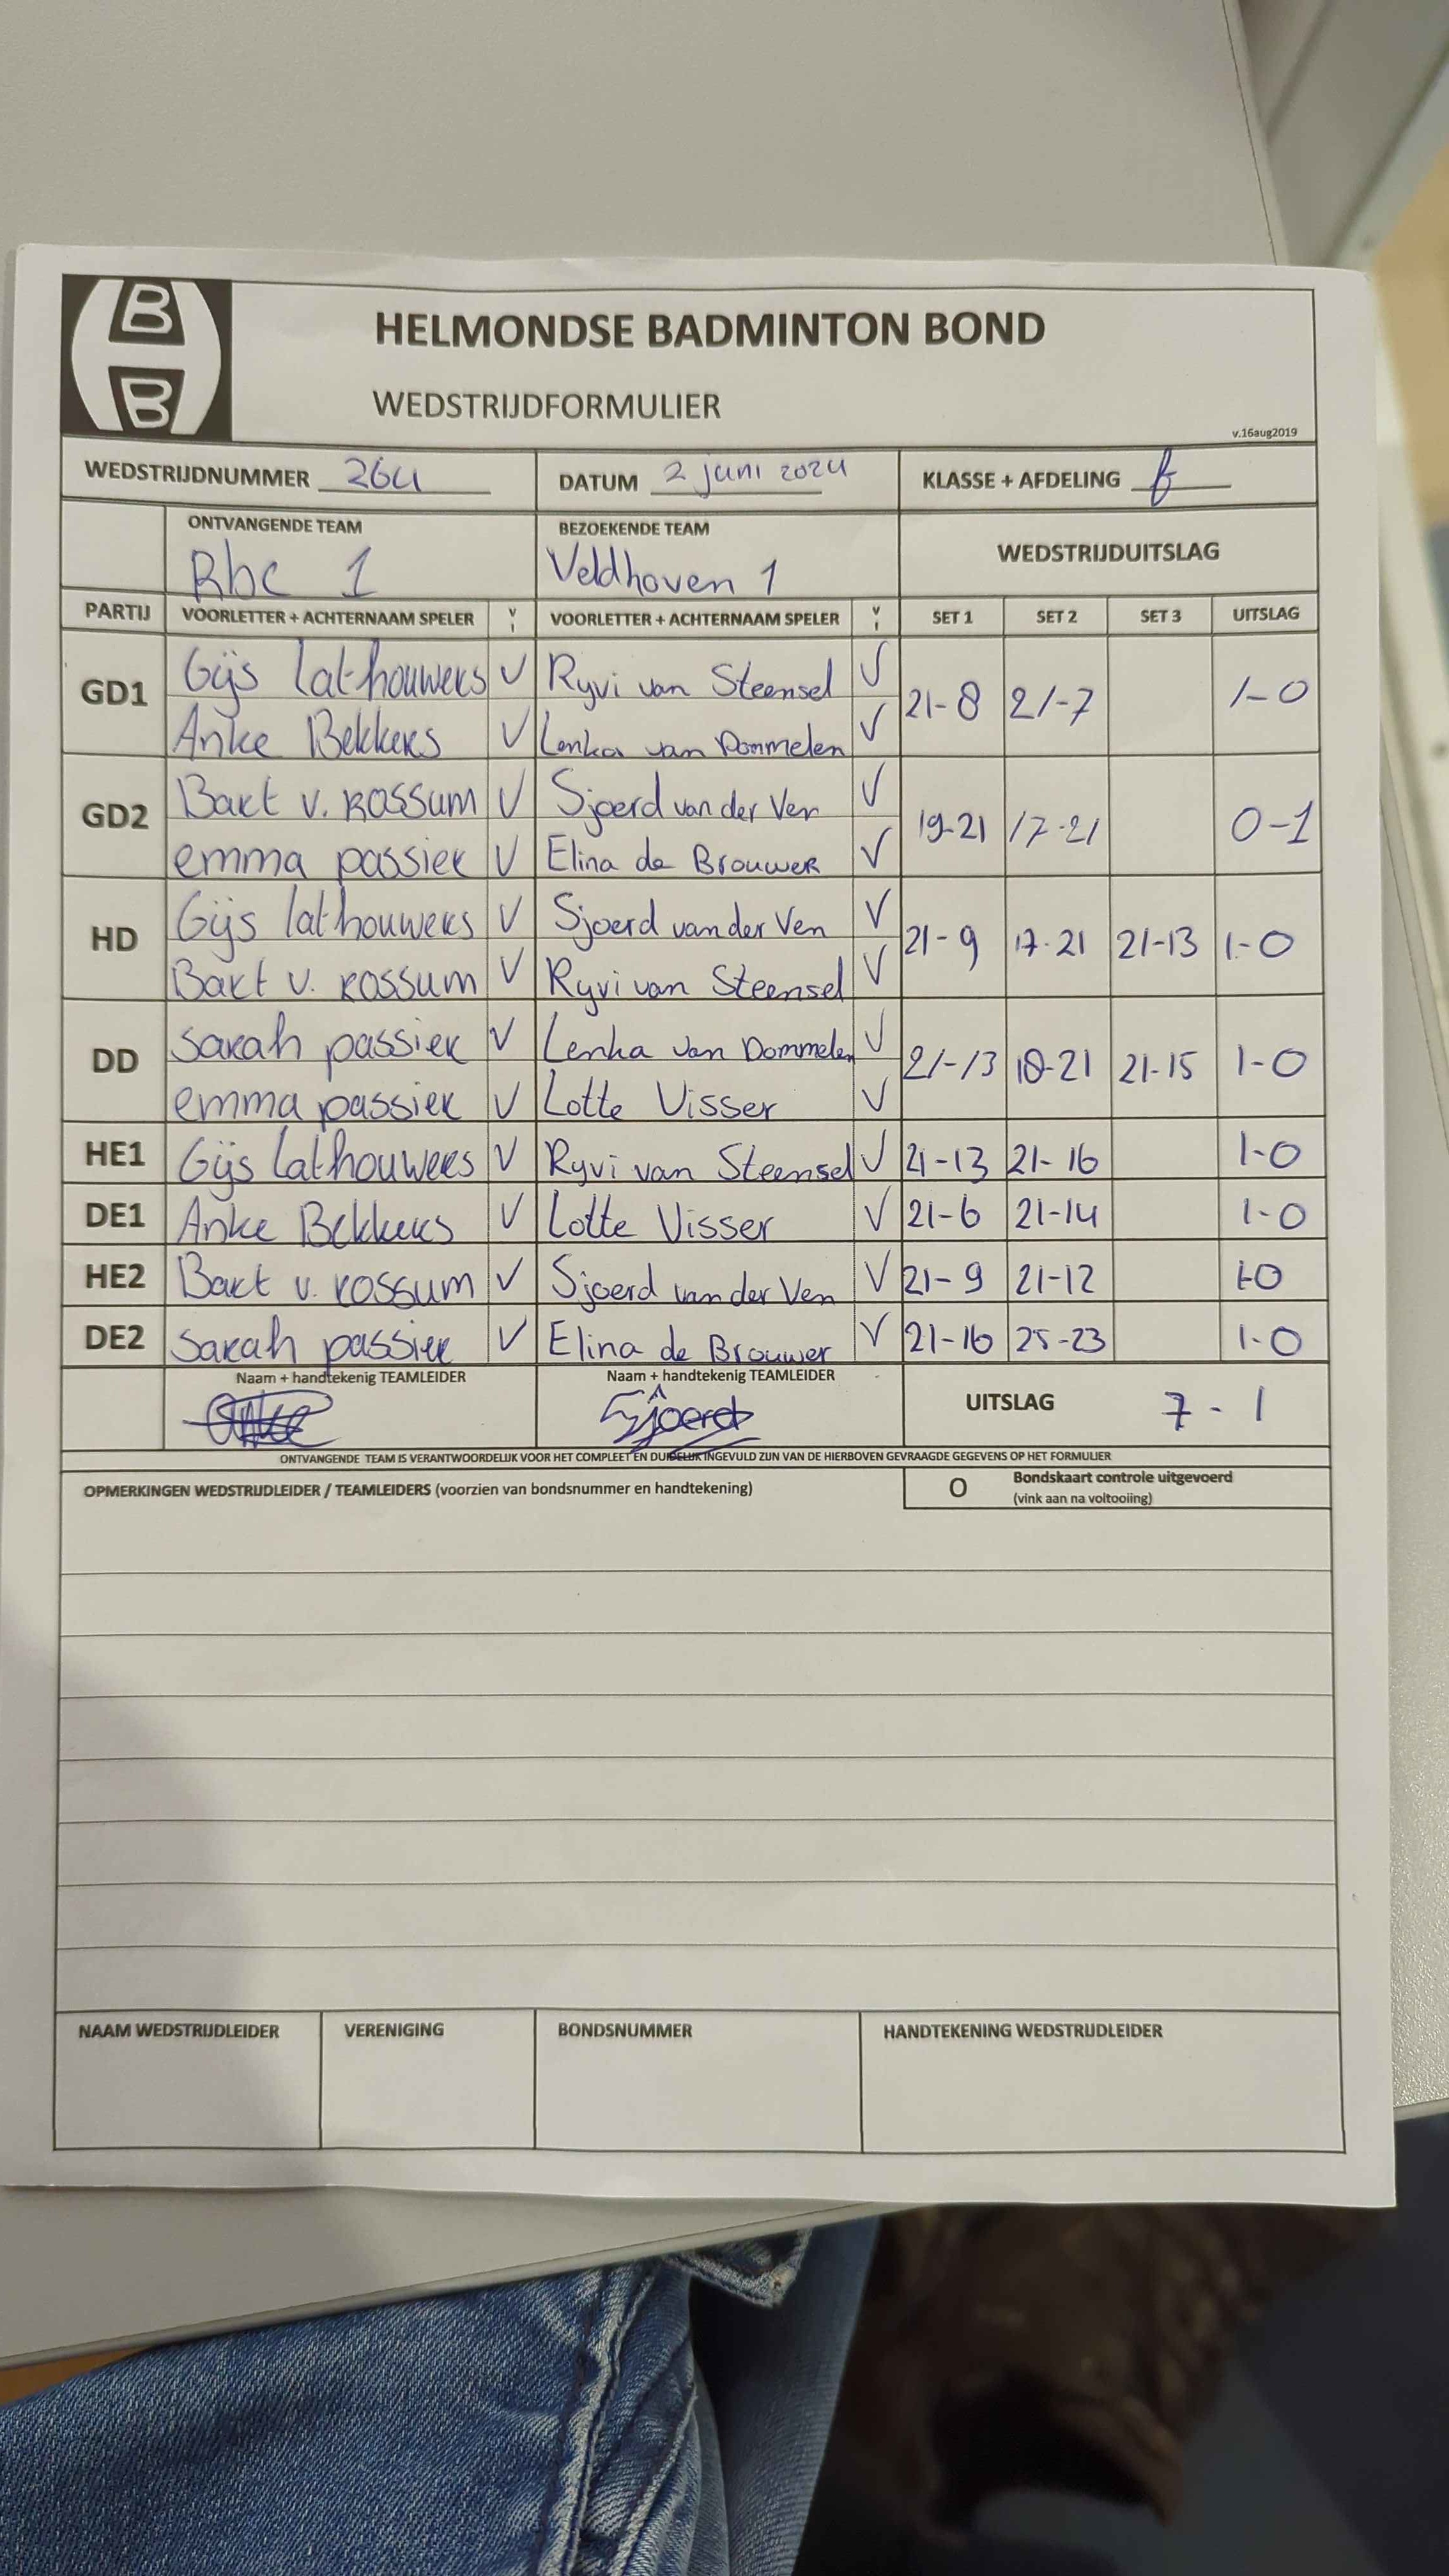 B
B
HELMONDSE BADMINTON BOND
WEDSTRIJDFORMULIER
v.16aug2019
WEDSTRIJDNUMMER 264 DATUM 2 juni 2024 KLASSE + AFDELING
ONTVANGENDE TEAM BEZOEKENDE TEAM WEDSTRIJDUITSLAG
Rbc 1 Veldhoven 1
PARTIJ VOORLETTER + ACHTERNAAM SPELER V I VOORLETTER + ACHTERNAAM SPELER V I SET 1 SET 2 SET 3 UITSLAG
GD1 Gijs Lathouwers V Ryvi van Steensel V 21-8 21-7 1-0
Anke Bekkers V Lenka van Dommelen V
GD2 Bart v. Rossum V Sjoerd van der Ven V 19-21 17-21 0-1
emma passier V Elina de Brouwer V
HD Gijs lathouwers V Sjoerd van der Ven V 21-9 17-21 21-13 1-0
Bart v. Rossum V Ryvi van Steensel V
DD Sarah passier V Lenka van Dommelen V 21-13 18-21 21-15 1-0
emma passier V Lotte Visser V
HE1 Gijs Lathouwers V Ryvi van Steensel V 21-13 21-16 1-0
DE1 Anke Bekkers V Lotte Visser V 21-6 21-14 1-0
HE2 Bart v. rossum V Sjoerd van der Ven V 21-9 21-12 1-0
DE2 Sarah passier V Elina de Brouwer V 21-16 25-23 1-0
Naam + handtekenig TEAMLEIDER Naam + handtekenig TEAMLEIDER UITSLAG 7-1
Sjoerd
ONTVANGENDE TEAM IS VERANTWOORDELIJK VOOR HET COMPLEET EN DUIDELIJK INGEVULD ZIJN VAN DE HIERBOVEN GEVRAAGDE GEGEVENS OP HET FORMULIER
OPMERKINGEN WEDSTRIJDLEIDER / TEAMLEIDERS (voorzien van bondsnummer en handtekening) O Bondskaart controle uitgevoerd
(vink aan na voltooiing)
NAAM WEDSTRIJDLEIDER VERENIGING BONDSNUMMER HANDTEKENING WEDSTRIJDLEIDER